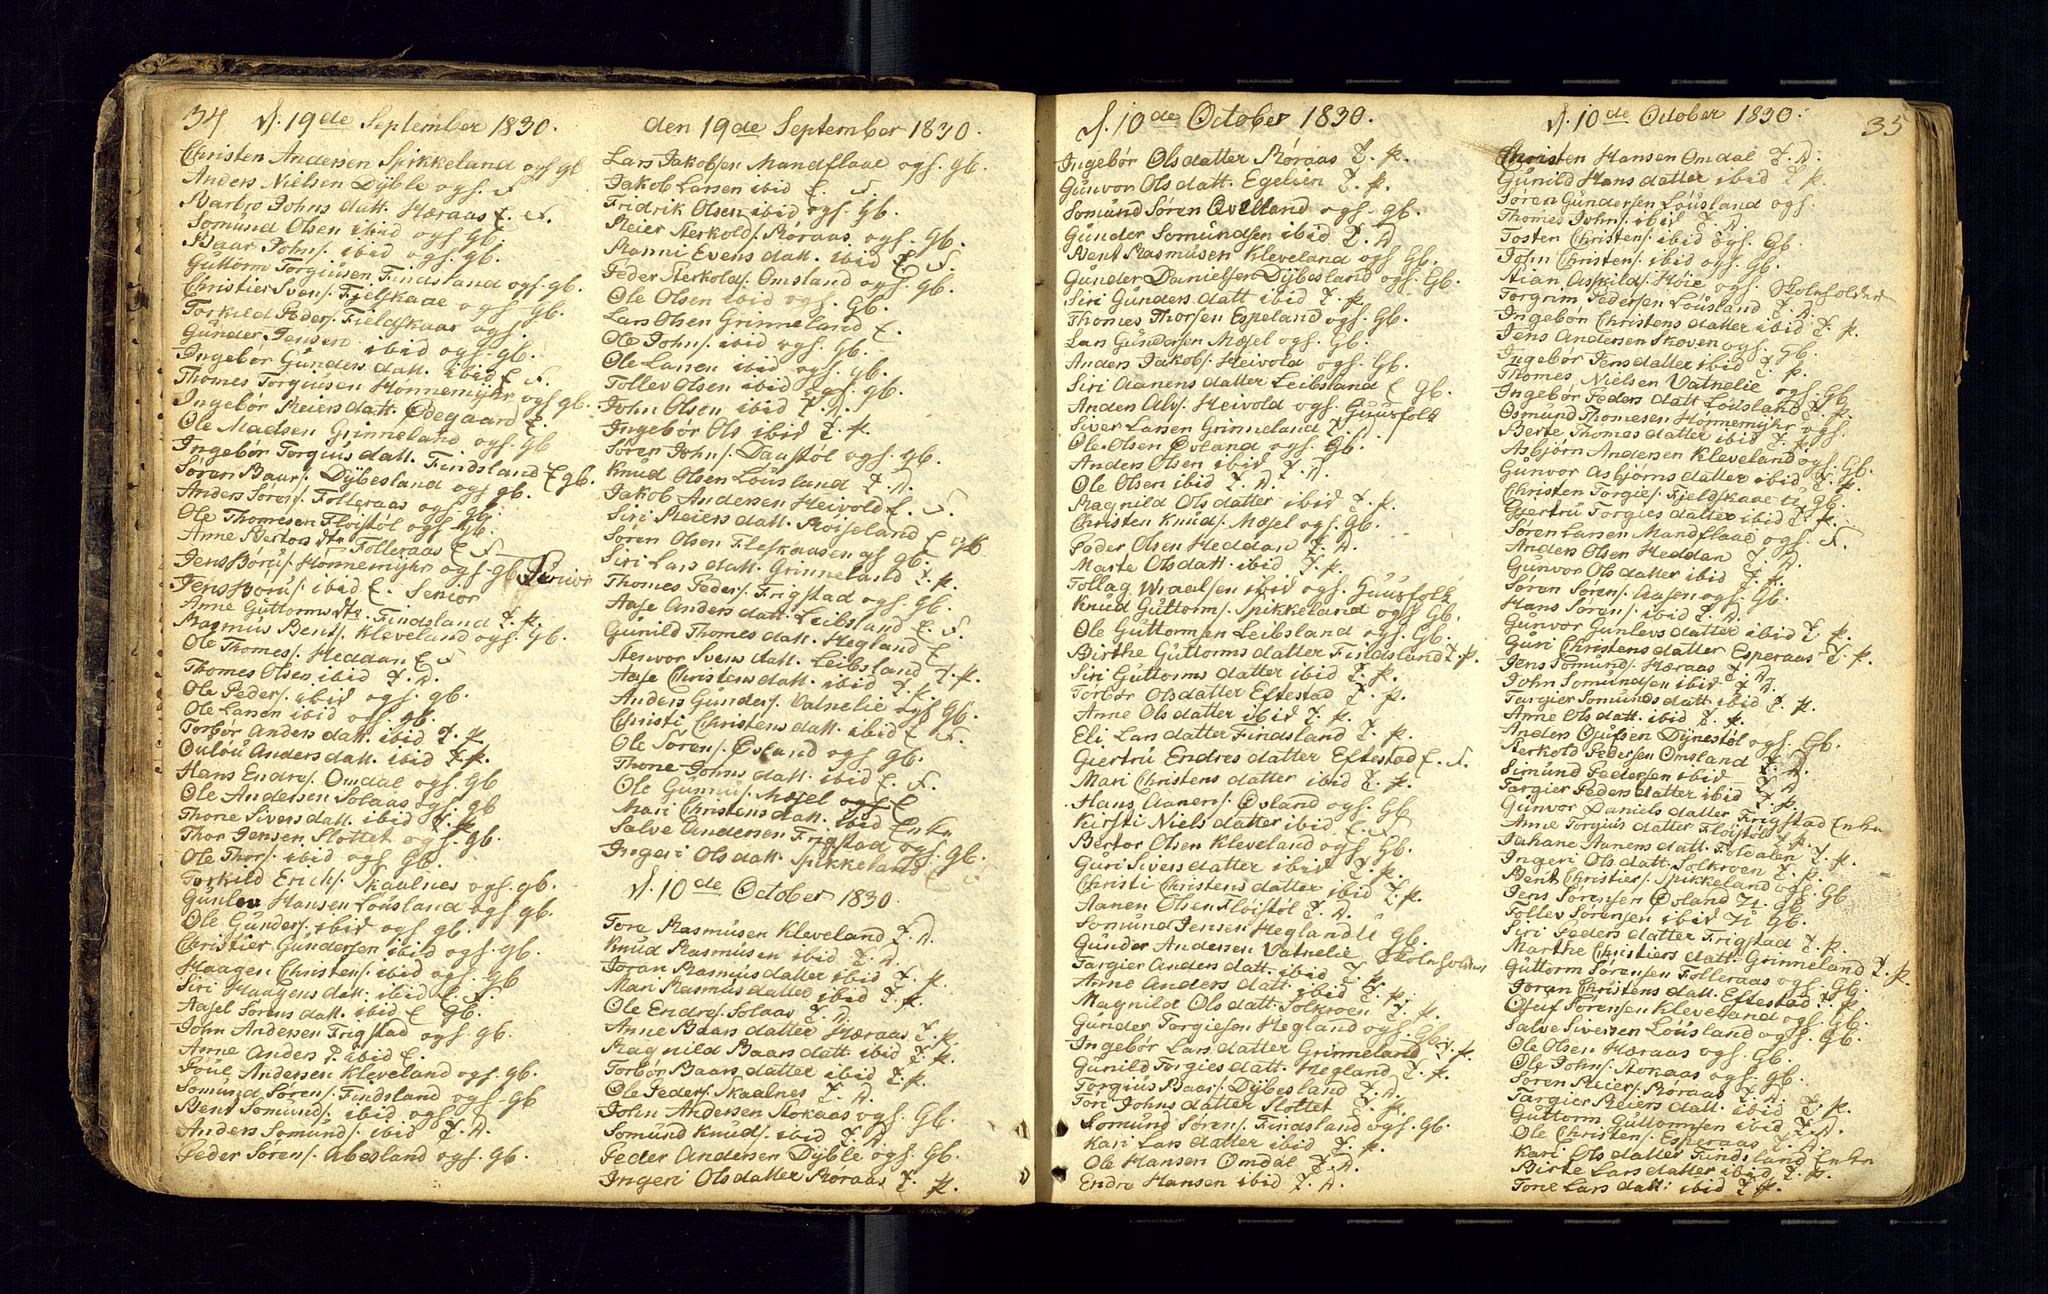 34 d. 19de September 1830.
Christen Andersen Spikkeland ogh gb
Anders Nielsen Dÿble ogh. F
Barbro Johns datt. Hæraas E. F.
Somund Olsen ibid ogh gb
Baar Johns. ibid ogh. gb.
Güttorm Torgiusen Findsland ogh. gb.
Christier Svens. Fjelskaae ogh gb.
Torkild Peders. Fieldskaar ogh.
Günder Jensen ibid ogh. gb.
Ingebor Günders datt. ibid E F.
Thomes Torgiusen Hønnemÿhr ogh gb.
Ingebor Reiers datt. Ødegaard E.
Ole Madsen Grinneland ogh. gb
Ingebor Torgius datt. Findsland E gb.
Søren Baars. Dÿbesland ogh gb.
Anders Sørens. Folleraas ogh. gb.
Ole Thomesen Fløistøl ogh gb.
Anne Bertors dtr Folleraas E F
Jens Børüs. Hønnemÿhr ogh. gb. Junior
Jens Børus. ibid E. Senior
Anne Güttorms dtr. Findsland T. p.
Rasmus Bents. Kleveland ogh. gb.
Ole Thomes. Heddan E F
Thomes Olsen ibid T. D.
Ole Peders. ibid ogh. gb.
Ole Larsen ibid ogh. gb.
Torbør Anders datt. ibid T. p.
Oulou Anders datt. ibid T. p.
Hans Endres. Omdal ogh gb
Ole Andersen Solaas ogh gb
Thone Sivers datt. ibid T. p.
Thor Jensen Slottet ogh. gb.
Ole Thors. ibid ogh gb.
Torkild Erichs. Skaalnes ogh. gb.
Gunlev Hansen Lousland ogh gb.
Ole Günders. ibid ogh gb.
Christier Gündersen ibid ogh. gb.
Haagen Christens. ibid ogh gb
Siri Haagens datt. ibid E. F.
Aasel Torens datt. ibid E gb.
John Andersen Frigstad ogh gb.
Anne Anders d. ibid E.
Poul Andersen Kleveland ogh. gb.
Somund Sørens. Findsland ogh gb
Bent Somunds. ibid ogh F
Anders Somunds. ibid T. D.
Peder Sørens. Abesland ogh. gb.
den 19de September 1830.
Lars Jakobsen Mandflaae ogh. gb.
Jakob Larsen ibid E. F.
Fridrik Olsen ibid ogh. gb.
Reier Sterkolds. Røraas ogh. gb.
Ranni Evens datt. ibid E F.
Peder Sterkolds. Omsland ogh gb.
Ole Olsen ibid ogh. gb.
Lars Olsen Grinneland E.
Ole Johns. ibid ogh. gb.
Ole Larsen ibid ogh. gb.
Tollev Olsen ibid ogh. gb.
John Olsen ibid T. D.
Ingebør Ols ibid T. p.
Søren Johns. Daastøl ogh. gb.
Knud Olsen Løusland T. D.
Jakob Andersen Heivold E. F.
Siri Reiers datt. Roiseland E gb
Søren Olsen Fleskaasen ogh gb.
Siri Lars datt. Grinneland T. p.
Thomes Peders. Frigstad ogh. gb.
Aase Anders datt. Leibsland E. F.
Günild Thomes datt. Hegland E
Stenvor Svens datt. Leibsland T. p.
Aase Christens datt. ibid T. p.
Anders Günders. Vatnelie ogh gb.
Christi Christens datt. ibid E F.
Ole Sørens. Øvland ogh gb.
Thone Johns datt. ibid E. F.
Ole Gunnus. Møsel ogh E
Mari Christens datt. ibid Enke
Salve Andersen Frigstad ogh. gb.
Ingeri Ols datt. Spikkeland E F
d. 10de October 1830.
Tore Rasmusen Kleveland T. D.
Knud Rasmusen ibid T. D.
Joran Rasmus datter ibid T. p.
Mari Rasmus datter ibid T. p.
Ole Endres. Solaas T. D.
Anne Baars datter Hæraas T. p.
Ragnild Baars datt. ibid T. p.
Torbør Baars datter ibid T. p.
Ole Peders. Skaalnes T. D.
John Andersen Stokaas ogh. gb.
Somund Knuds. ibid T. D.
Peder Andersen Dÿble ogh. gb.
Ingeri Ols datter Røraas T. p.
d. 10de October 1830.
Ingebør Olsdatter Røraas T. p.
Günvor Ols datt. Egelien T. p.
Somünd Søren Qvelland ogh. gb.
Günder Somündsen ibid T. D.
Bent Rasmusen Kleveland ogh gb.
Günder Danielsen Dÿbesland ogh. gb.
Siri Günders datt ibid T. p.
Thomes Thorsen Espeland ogh. gb.
Lars Gündersen Møsel ogh. gb.
Anders Jakobs. Heivold ogh. gb.
Siri Aanens datter Leibsland E gb.
Anders Alvs. Heivold ogh. Huusfolk
Siver Larsen Grinneland T. D.
Ole Olsen Øvland ogh. gb.
Anders Olsen ibid T. D.
Ole Olsen ibid T. D.
Ragnild Ols datter ibid T. p.
Christen Knuds. Møsel ogh. gb.
Peder Olsen Heddan T. D.
Marte Olsdatt. ibid T. p.
Tollag Wraalsen ibid ogh. Huusfolk
Knud Güttorms. Spikkeland ogh gb.
Ole Güttormsen Leibsland ogh. gb.
Birthe Güttorms datter Findsland T. p.
Siri Güttorms datter ibid T. p.
Torbør Olsdatter Eftestad T. p.
Anne Ols datter ibid T. p.
Eli Lars datter Findsland T. p.
Giertrü Endres datter Eftestad E. F.
Mari Christens datter ibid T. p.
Hans Aanens. Øvland ogh gb
Kirsti Niels datter ibid E. F.
Bertor Olsen Kleveland ogh gb.
Guri Sivers datter ibid T. p.
Christi Christens datter ibid T. p.
Aanen Olsen Fløistøl T. D.
Somünd Jensen Heglandli gb.
Günder Andersen Vatnelie Skoleholder
Targier Anders datt. ibid T. p.
Anne Anders datt. ibid T. p.
Magnilde Ols datt. Solkroen T. p.
Günder Torgiesen Hegland ogh. gb.
Ingebør Lars datter Grinneland T. p.
Günild Torgies datt. Hegland T. p.
Torgius Baars. Dÿbesland T. D.
Tøri Johns datter Slottet T. p.
Somund Sørens. Findsland ogh. gb.
Kari Lars datter ibid T. p.
Ole Hansen Omdal T. D.
Endre Hansen ibid T. D.
d. 10de October 1830. 35
Christen Hansen Omdal T. D.
Günild Hans datter ibid T p.
Søren Gündersen Løusland ogh.
Thomes Johns. ibid T. D.
Tosten Christens. ibid ogh. gb.
John Christens. ibid ogh. gb.
Stian Askilds. Høie ogh. Skoleholder
Torgrim Pedersen Løusland T. D.
Ingebør Christens datter ibid T. p.
Jens Andersen Skoven ogh. gb.
Ingebør Jens datter ibid T. p.
Thomes Nielsen Vatnelie ogh. gb
Ingebør Peders datt. Løusland T. p.
Osmund Thomesen Hønnemÿhr ogh.
Berte Thomes datter ibid T. p.
Asbjørn Andersen Kleveland ogh. gb.
Günvor Asbjørns datter ibid T. p.
Christen Torgies. Fjeldskaae ti gb.
Gjertrü Torgies datter ibid T. p.
Søren Larsen Mandflaae ogh. F.
Anders Olsen Heddan T. D.
Gunvor Ols datter ibid T. p.
Søren Sørens. Aasen ogh. gb.
Hans Sørens. ibid T. D.
Günvor Gunlevs datter ibid T. p.
Guri Christens datter Esperaas T. p.
Jens Somünds. Hæraas T D
John Somündsen ibid T. D.
Targier Somunds datt ibid T. p.
Anne Ols datt. ibid T. p.
Anders Ojufsen Dÿnestøl ogh. gb.
Sterkold Pedersen Omsland T. D.
Simünd Pedersen ibid T. D.
Targier Peders datter ibid T. p.
Günvor Daniels datter Frigstad Enke
Anne Torgius datter Fløistøl T. p.
Jahane Aanens datt. Foldalen T. p.
Ingeri Ols datt. Solkroen T. p.
Bent Christiers. Spikkeland ogh. gb
Jens Sørensen Øvland Ti. gb
Tollev Sørensen ibid Ti gb.
Siri Peders datter Frigstad T. p.
Marthe Christiers datt. Grinneland T. p.
Güttorm Sørensen Folleraas ogh. gb.
Joran Christens datt. Eftestad T. p.
Ojuf Torensen Kleveland ogh gb.
Salve Siversen Løusland ogh. gb.
Ole Olsen Hæraas ogh. gb.
Ole Johns. Stokaas ogh. gb.
Søren Reiers. Røraas T. D.
Targier Reiers datt. ibid T. p.
Güttorm Güttormsen ibid T. D.
Ole Christens. Esperaas T. D.
Kari Ols datter Findsland Enke
Birte Lars datter ibid T. p.
Tone Lars datt: ibid T. p.